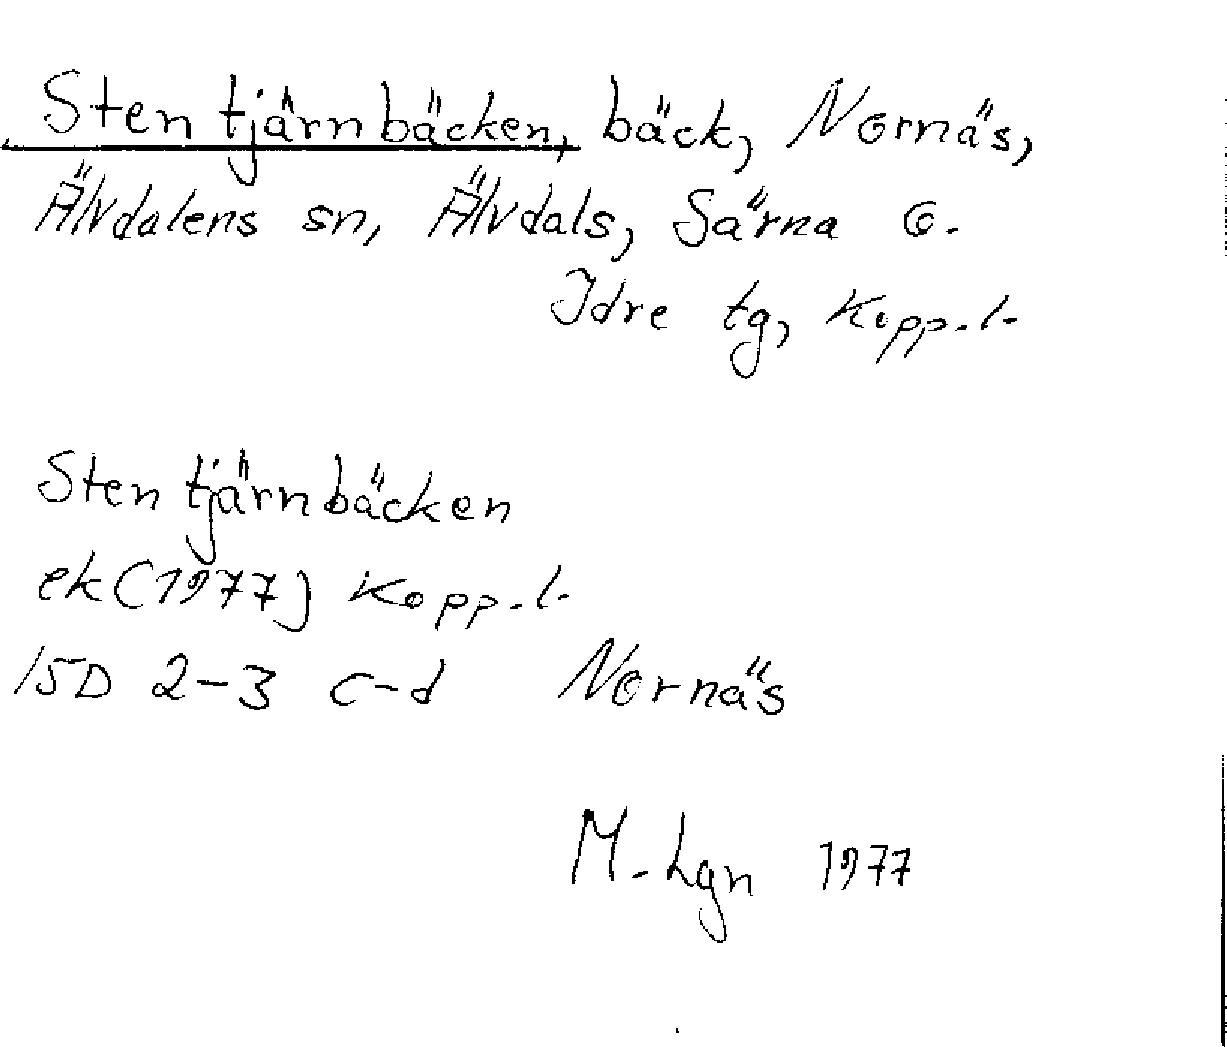 Stentjärnbäcken, bäck, Nornäs,
Älvdalens sn, Älvdals, Särna o.
Idre tg, Kopp.l.
Stentjärnbäcken
ek (1977) Kopp.l.
15D 2-3 c-d Nornäs
M. Lgn 1977